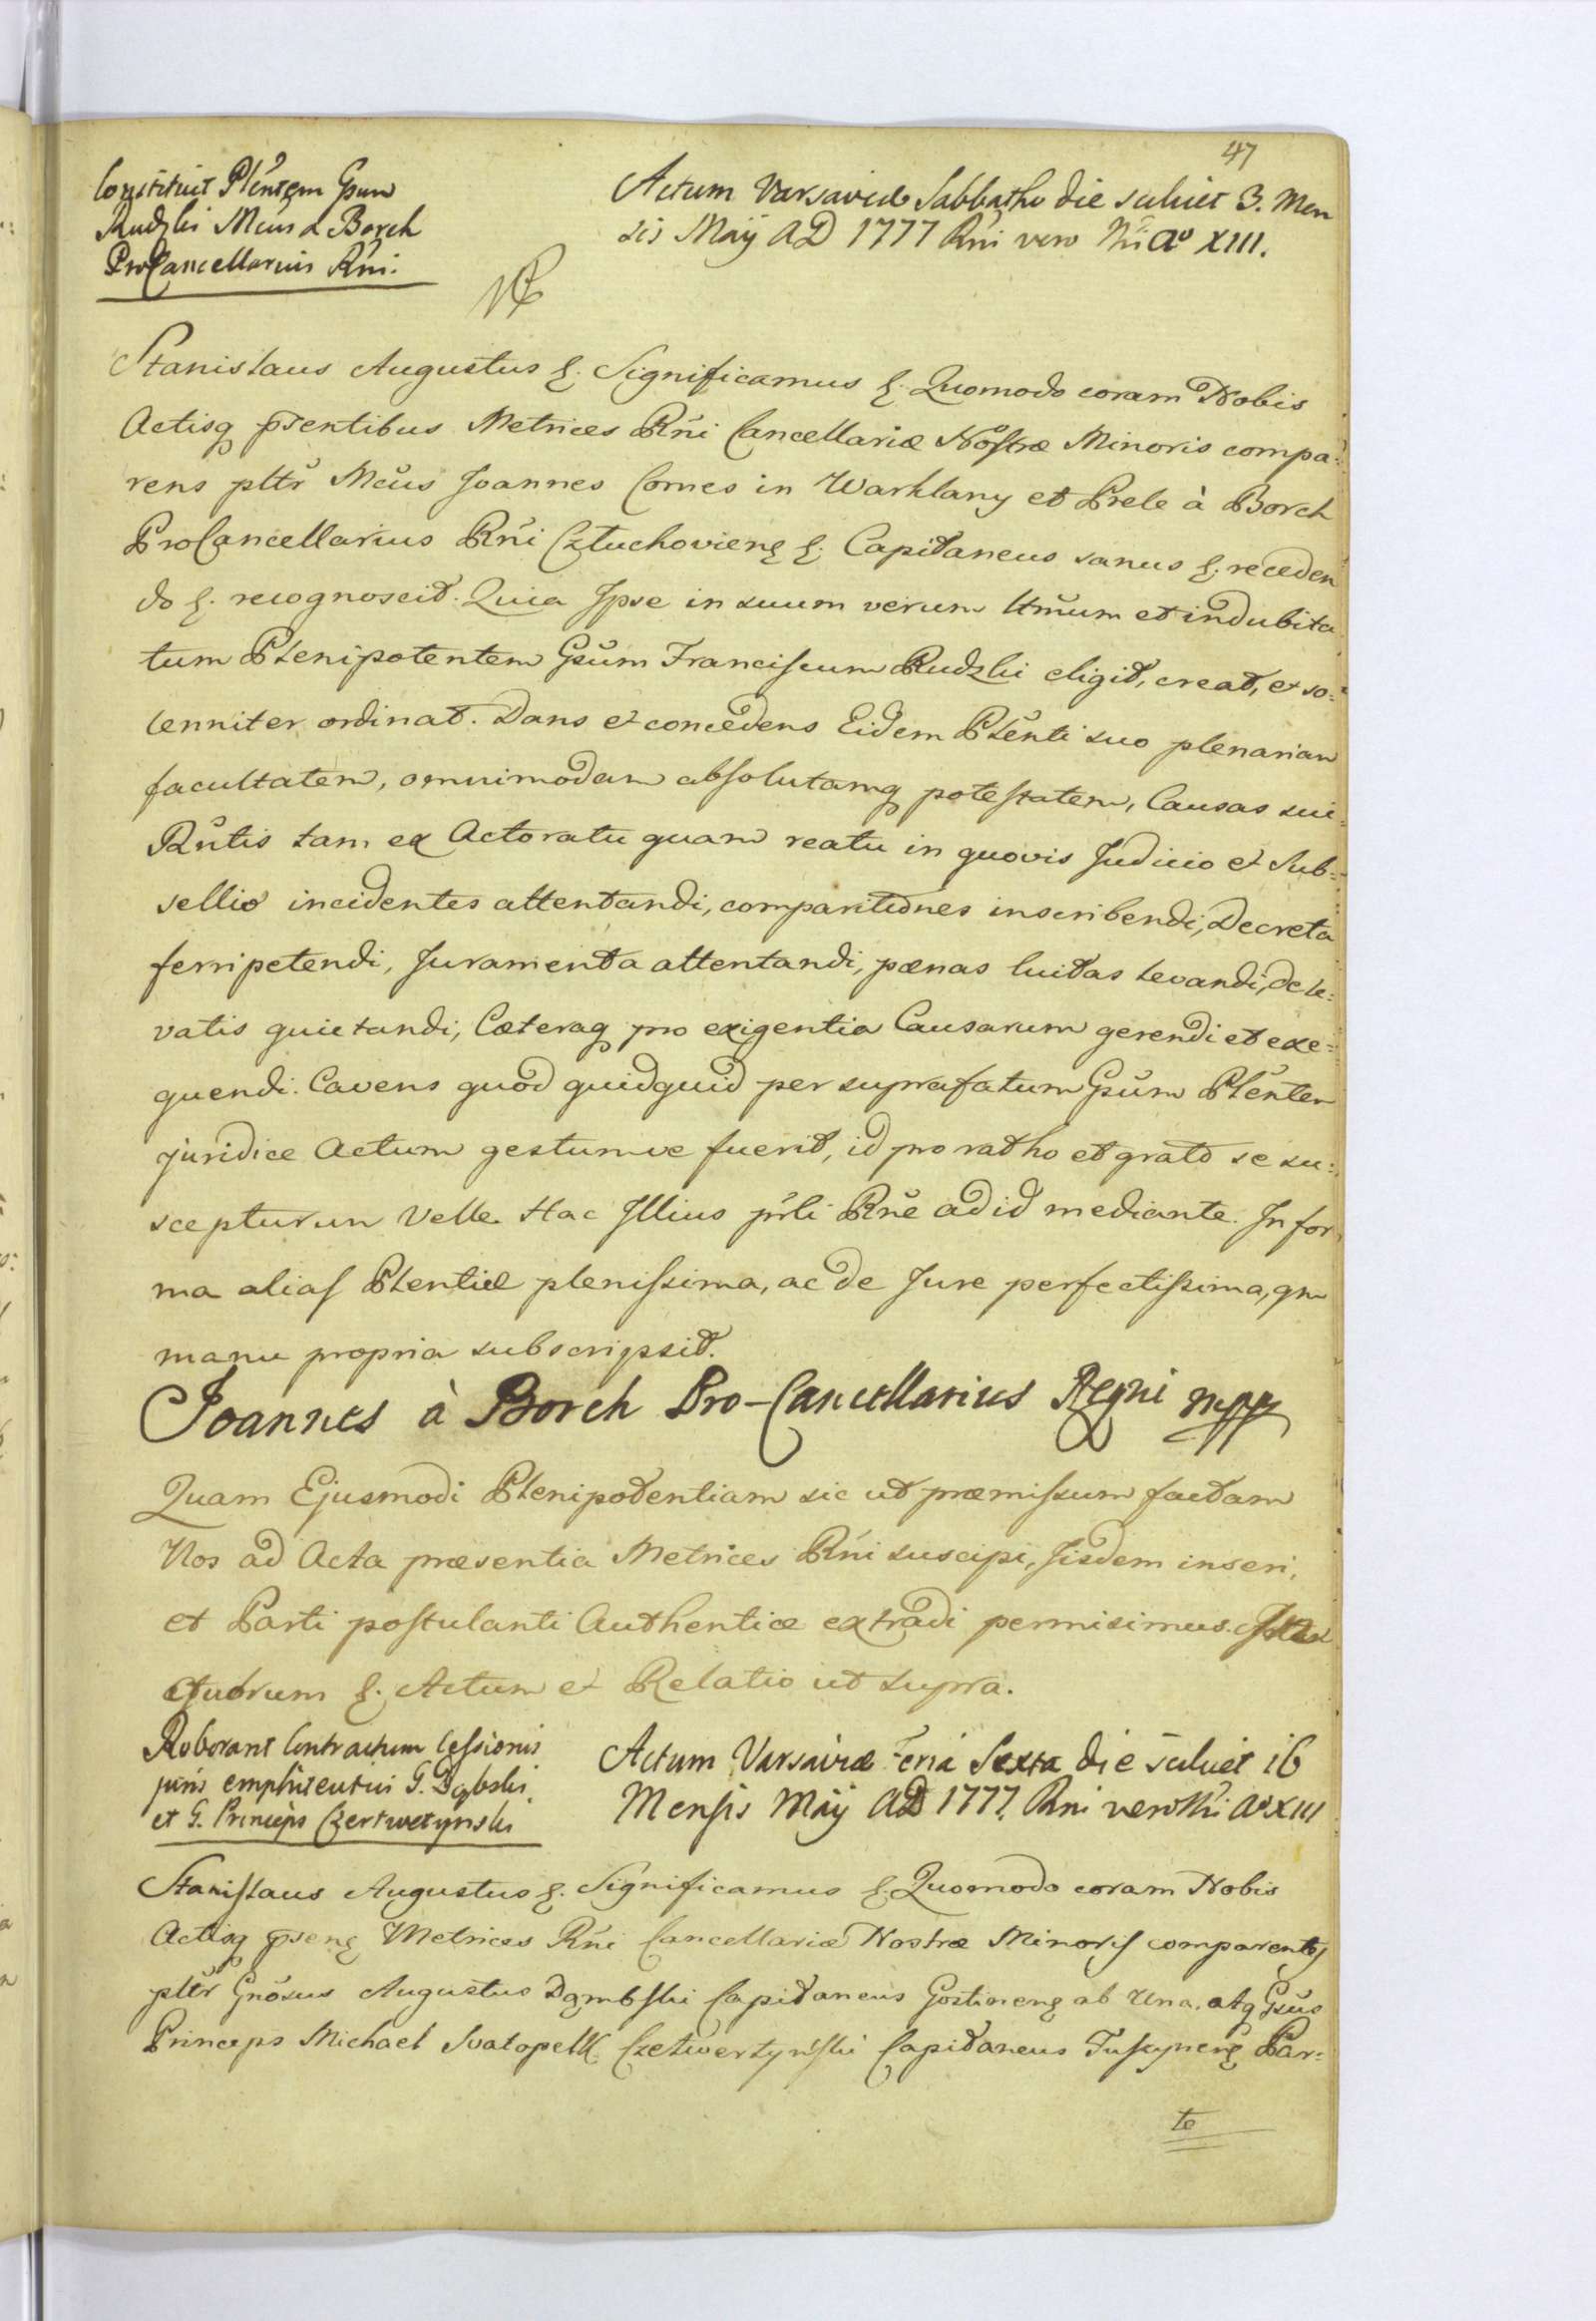 47
Constituit Plentem Gsum
Rudzki Mcus a Borch
ProCancellarius Rni.
Actum Varsaviæ Sabbatho die scilicet 3. Men
sis Maÿ AD 1777 Rni vero Nri Aº XIII.
Stanislaus Augustus &. Significamus &. Quomodo coram Nobis
Actisq pr̃sentibus Metrices Rñi Cancellariæ Nostræ Minoris compa:
rens pltr Mcus Joannes Comes in Warklany et Prele à Borch
ProCancellarius Rñi Człuchovieñ &. Capitaneus sanus &. receden
do &. recognoscit. Quia Ipse in suum verum ltm̃um et indubita
tum Plenipotentem Gsũm Franciscum Rudzki eligit, creat, et so:
lenniter ordinat. Dans et concedens Eidem Plẽnti suo plenariam
facultatem, omnimodam absolutamq potestatem, Causas sui
Rñtis tam ex Actoratu quam reatu in quovis Judicio et Sub:
sellio incidentes attentandi, comparitiones inscribendi, Decreta
ferri petendi, Juramenta attentandi, pœnas luitas levandi, de le:
vatis quietandi, Cæteraq pro exigentia Causarum gerendi et exe:
quendi. Cavens quod quidquid per suprafatum Gsũm Plẽntem
juridice Actum gestumve fuerit, id pro ratho et grato se su:
scepturum velle. Hac Illius prl̃i Rñe ad id mediante. In for
ma alias Plentiæ plenissima, ac de Jure perfectissima, qm
manu propria subscripsit.
Joannes à Borch Pro-Cancellarius Regni mpp
Quam Ejusmodi Plenipotentiam sic ut præmissum factam
Nos ad Acta præsentia Metrices Rñi suscipi, Iisdem inseri,
et Parti postulanti Authentice extradi permisimus.
quorum &. Actum et Relatio ut supra.
Roborant Contractum Cessionis
juris emphiteutici G. Dąbski
et G. Princeps Czertwetynski
Actum Varsaviæ Feria Sexta die scilicet 16
Mensis Maÿ AD 1777. Rni vero Nri Aº XIII
Stanislaus Augustus &. Significamus &. Quomodo coram Nobis
Actisq pr̃señ Metrices Rñi Cancellariæ Nostræ Minoris comparentes
pltr Gñosus Augustus Dąmbski Capitaneus Gostineñ ab una. atq Gsũs
Princeps Michael Svatopelk Czetwertyński Capitaneus Tuszyneñ Par:
te